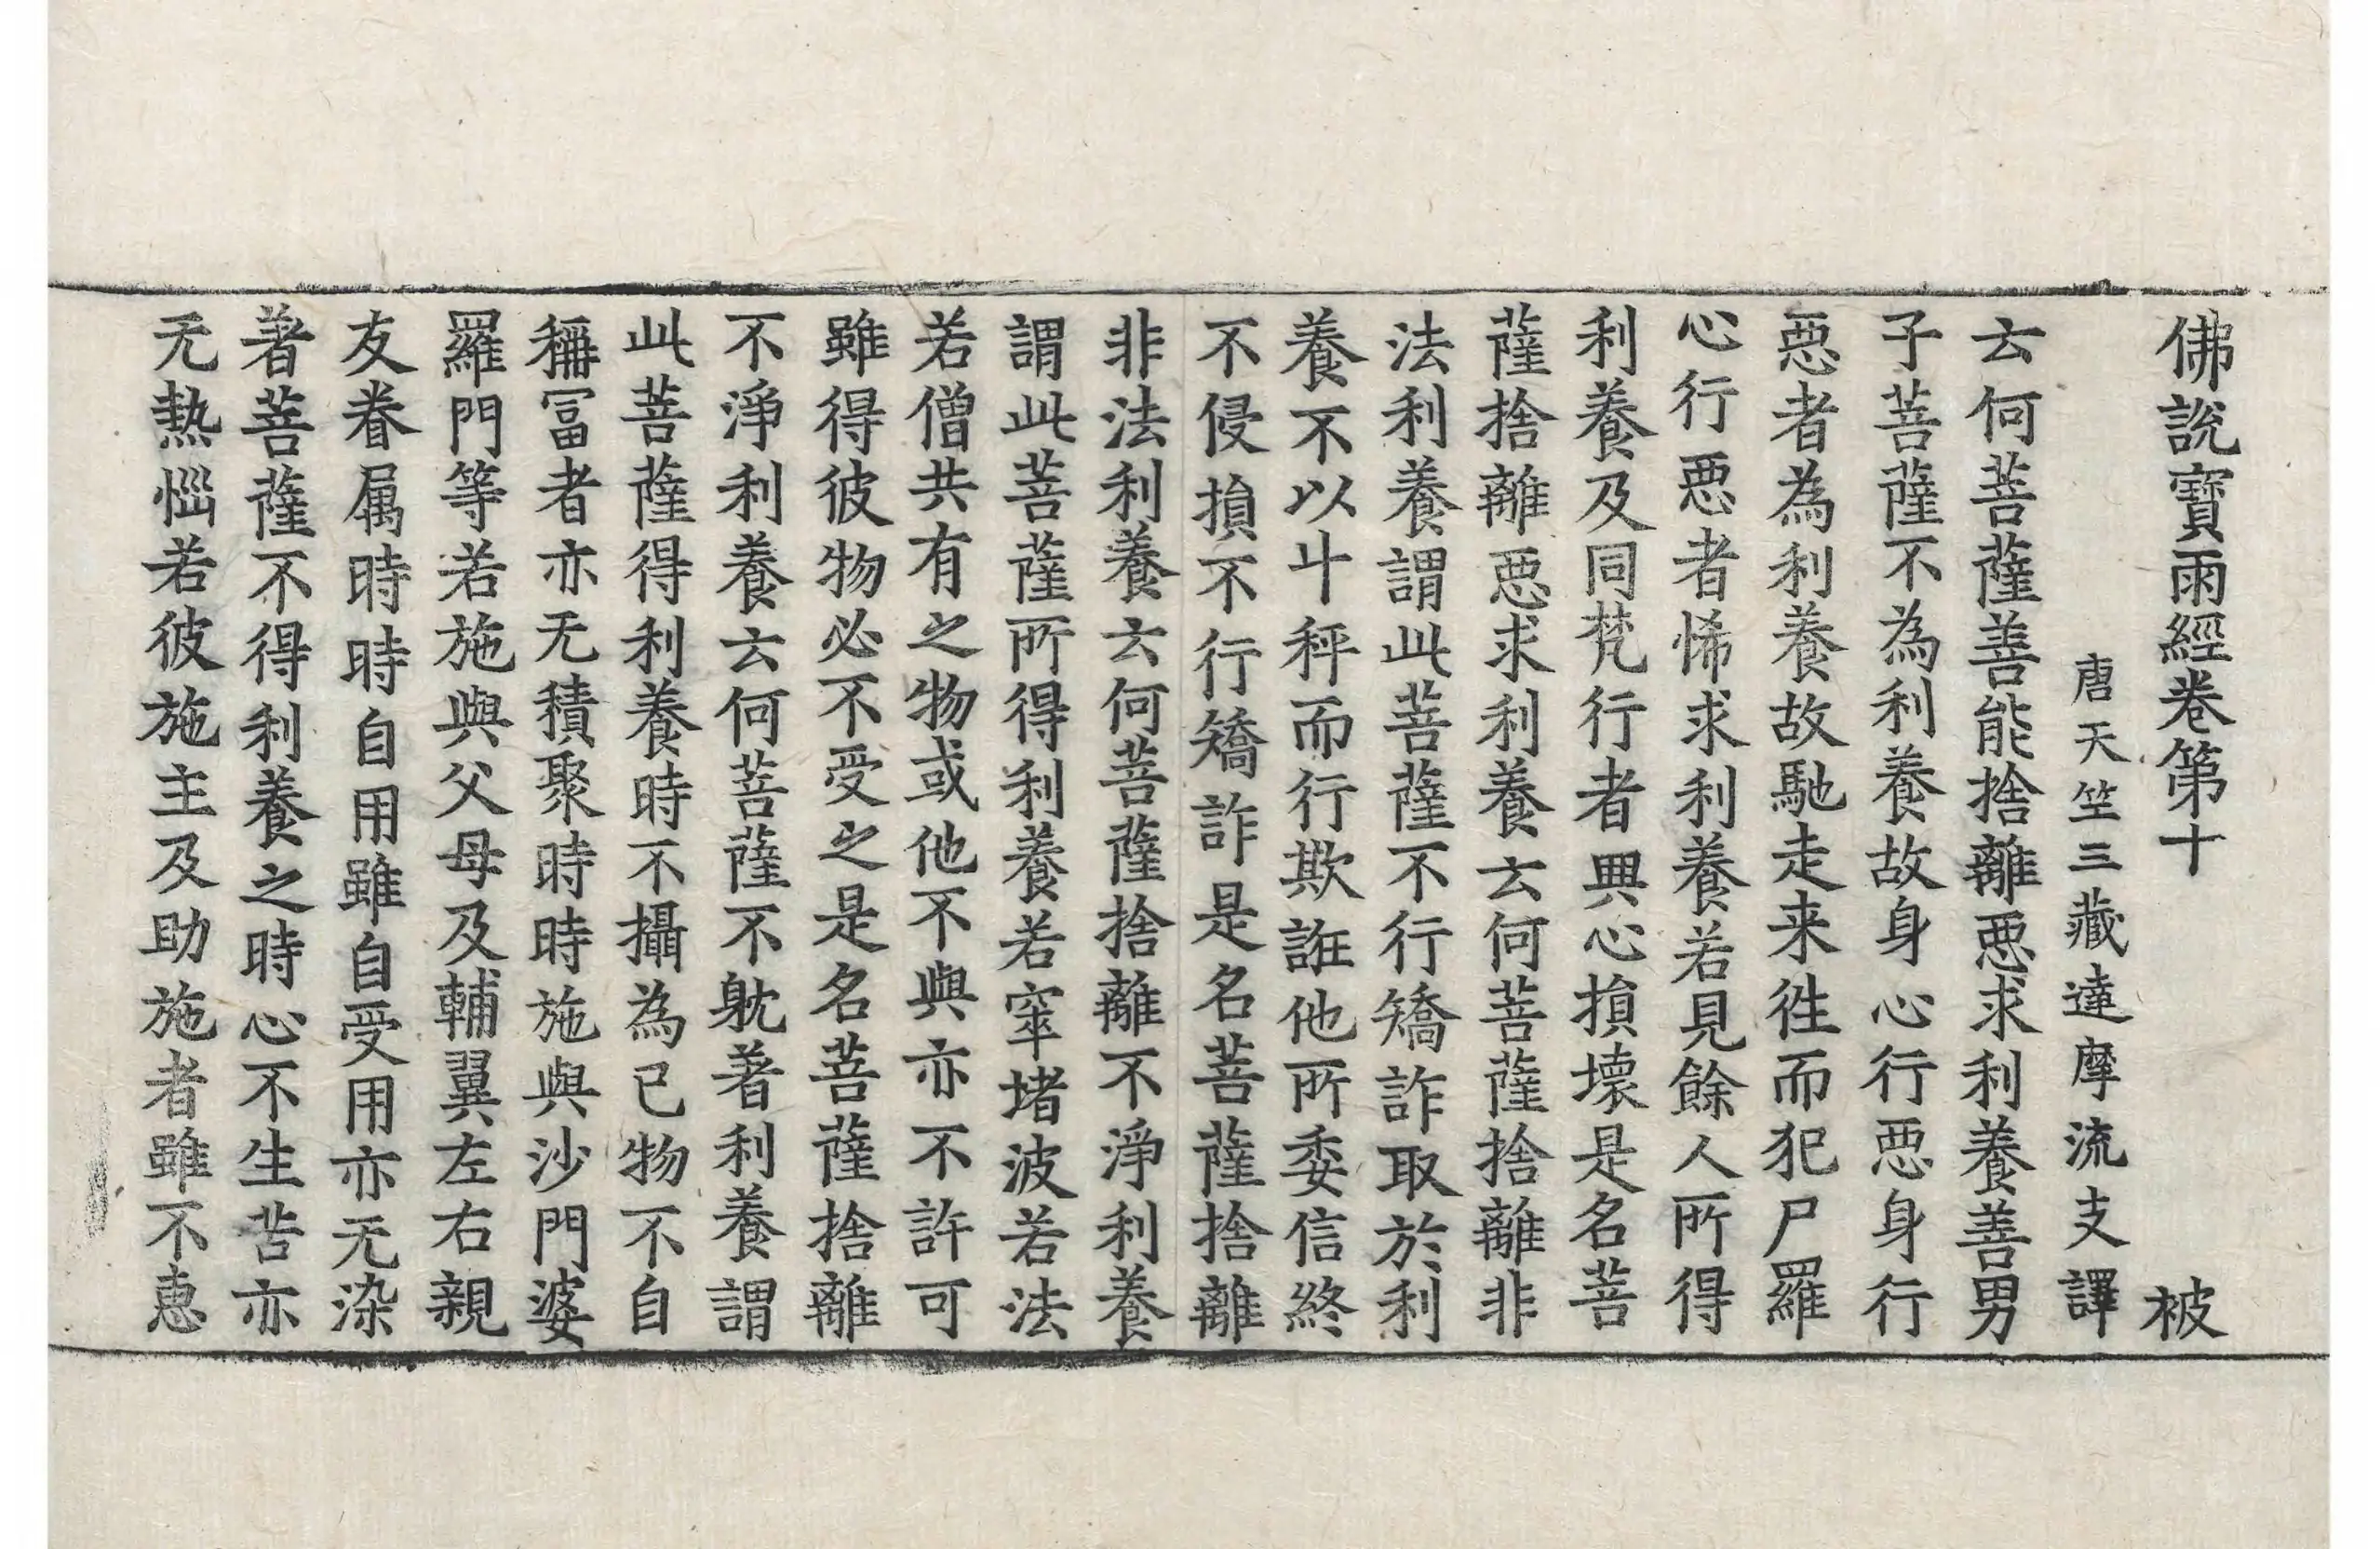 佛說寶雨經卷第十 被
唐天竺三藏達摩流支譯
云何菩薩善能捨離惡求利養善男
子菩薩不為利養故身心行惡身行
惡者為利養故馳走来徃而犯尸羅
心行惡者悕求利養若見餘人所得
利養及同梵行者興心損壞是名菩
薩捨離惡求利養云何菩薩捨離非
法利養謂此菩薩不行矯詐取於利
養不以斗秤而行欺誑他所委信終
不侵損不行矯詐是名菩薩捨離
非法利養云何菩薩捨離不淨利養
謂此菩薩所得利養若窣堵波若法
若僧共有之物或他不與亦不許可
雖得彼物必不受之是名菩薩捨離
不淨利養云何菩薩不躭著利養謂
此菩薩得利養時不攝為已物不自
稱冨者亦无積聚時時施與沙門婆
羅門等若施與父母及輔翼左右親
友眷属時時自用雖自受用亦无染
著菩薩不得利養之時心不生苦亦
无熱惱若彼施主及助施者雖不恵